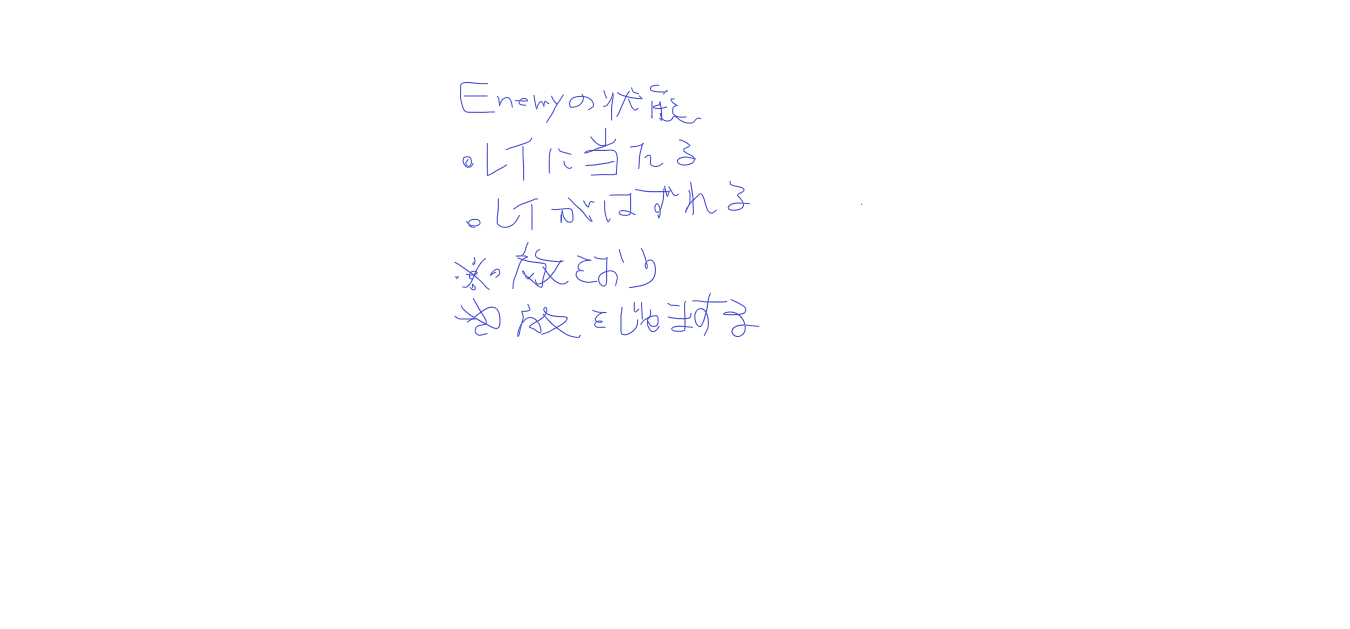 Enemyの状態
・レイに当たる
・レイがはずれる
をおり
をじゃまする